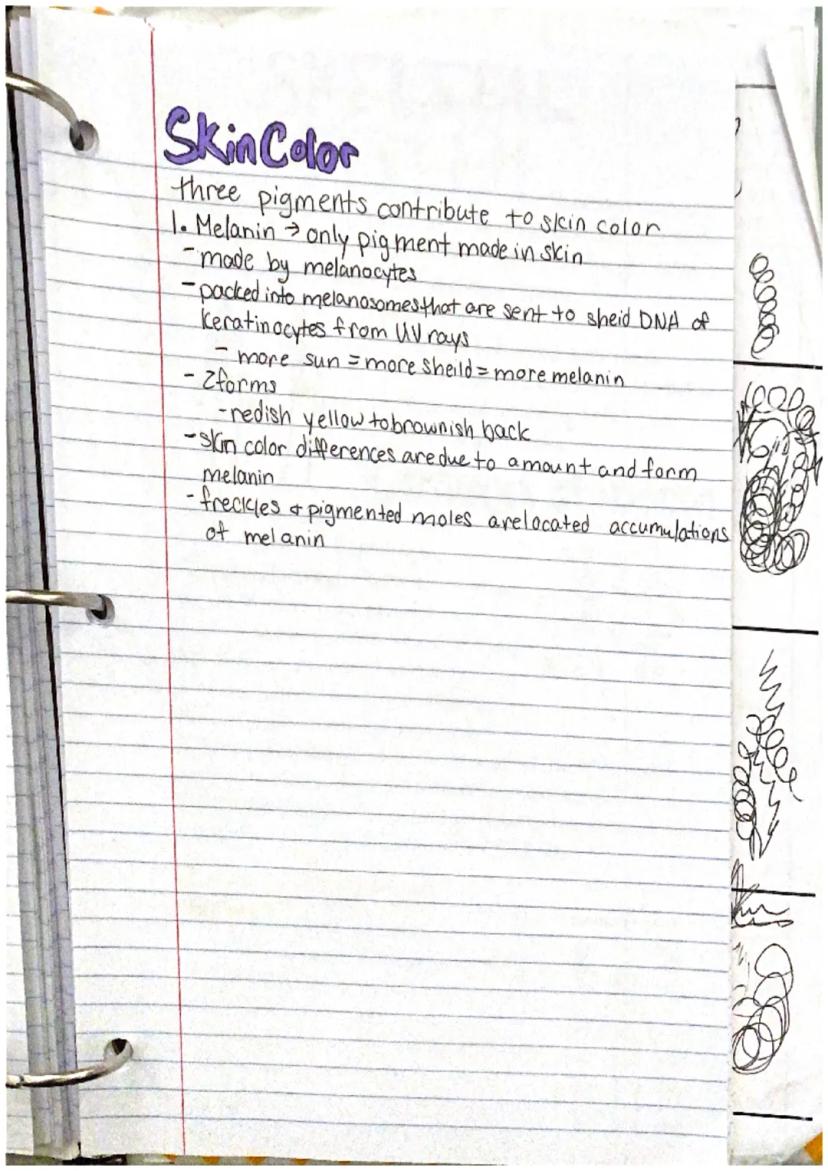 Skin Color
three pigments contribute to skin color
1. Melanin → only pigment made in skin
- made by melanocytes
- packed into melanosomes that are sent to sheid DNA of
keratinocytes from UV rays
- more sun = more sheild = more melanin
- 2 forms
- redish yellow to brownish back
- skin color differences are due to amount and form
melanin
- freckles & pigmented moles are located accumulations
of melanin